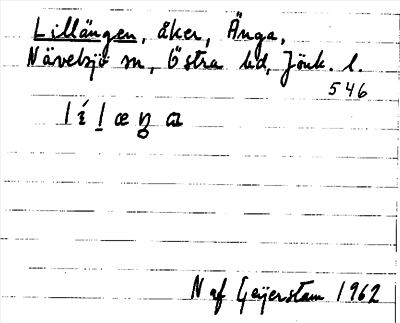 Lillängen, åker, Änga,
Nävelsjö sn, Östra hd, Jönk. l.
546
N af Geijerstam 1962